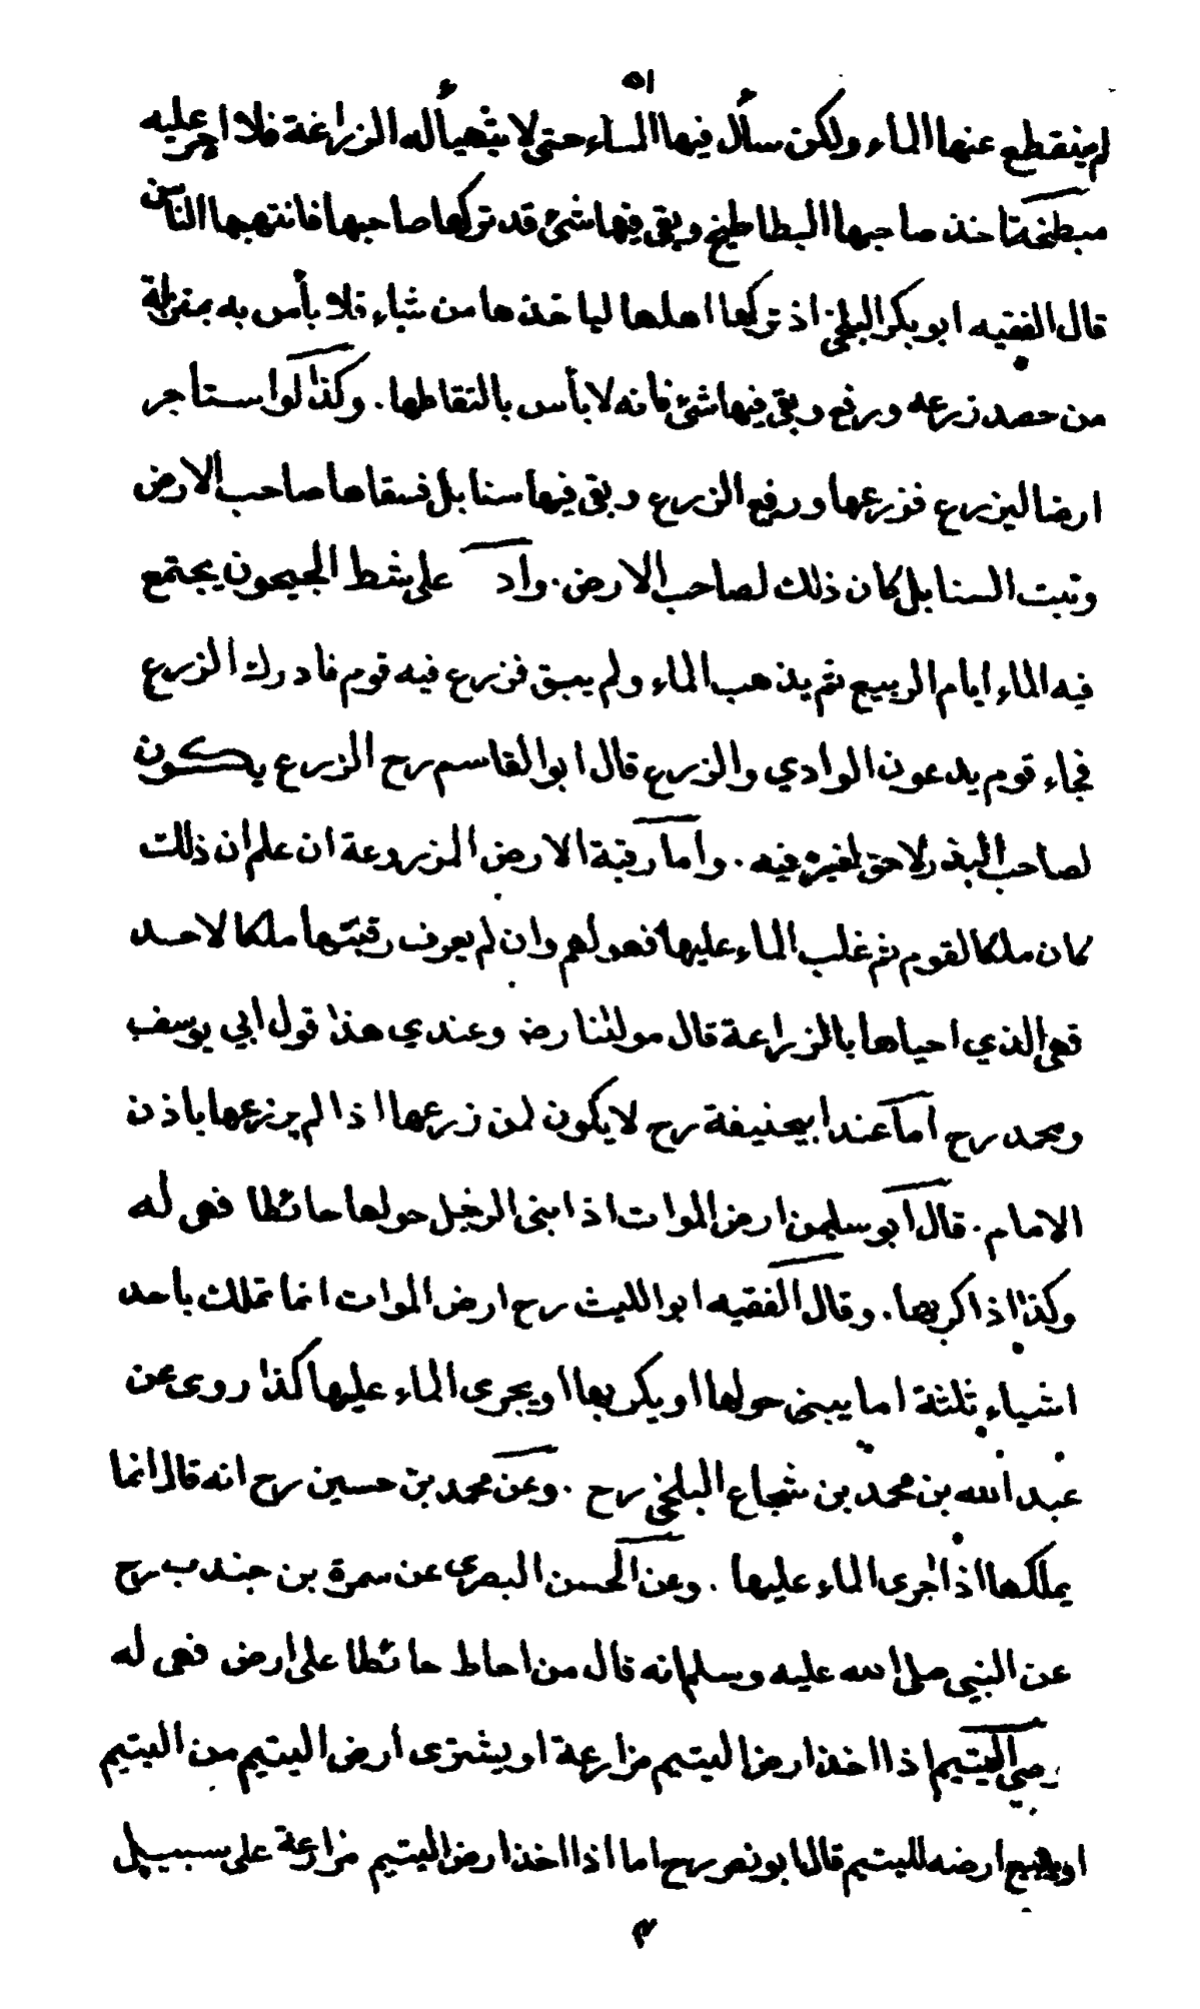 ٥١
لم ينقطع عنها الماء ولكن سأل فيها الماء حتى لا يتهيأ له الزراعة فلا اجر عليه
مبطخة اخذ صاحبها البطاطيخ وبقى فيها شئ قد تركها صاحبها فانتهبها الناس
قال الفقيه ابو بكر البلخى اذ تركها اهلها لياخذها من شاء فلا بأس به بمنزلة
من حصد زرعه ورفع وبقى فيها شئ فانه لا بأس بالتقاطها. وكذا لو استأجر
ارضا ليزرع فزرعها ورفع الزرع وبقى فيها سنابل فسقاها صاحب الارض
ونبت السنابل كان ذلك لصاحب الارض. واد على شط الجيحون يجتمع
فيه الماء ايام الربيع ثم يذهب الماء ولم يبق فزرع فيه قوم فادرك الزرع
فجاء قوم يدعون الوادي والزرع قال ابو القاسم رح الزرع يكون
لصاحب البذر لا حق لغيره فيه. واما رقبة الارض المزروعة ان علم ان ذلك
كان ملكا لقوم ثم غلب الماء عليها فهو لهم وان لم يعرف رقبتها ملكا لاحد
فهى الذي احياها بالزراعة قال مولنا رض وعندي هذا قول ابي يوسف
ومحمد رح اما عند ابيحنيفة رح لا يكون لمن زرعها اذا لم يزرعها باذن
الامام. قال ابو سليمن ارض الموات اذا بنى الرجل حولها حائطا فهى له
وكذا اذا كربها. وقال الفقيه ابو الليث رح ارض الموات انما تملك باحد
اشياء ثلثة اما يبنى حولها او يكربها او يجرى الماء عليها كذا روى عن
عبد الله بن محمد بن شجاع البلخى رح. وعن محمد بن حسين رح انه قال انما
يملكها اذا اجرى الماء عليها. وعن الحسن البصرى عن سمرة بن جندب رح
عن النبى صلى الله عليه وسلم انه قال من احاط حائطا على ارض فهى له
وصى اليتيم اذا اخذ ارض اليتيم مزارعة او يشترى ارض اليتيم من اليتيم
او يبيع ارضه لليتيم قال ابو نصر رح اما اذا اخذ ارض اليتيم مزارعة على سبيل